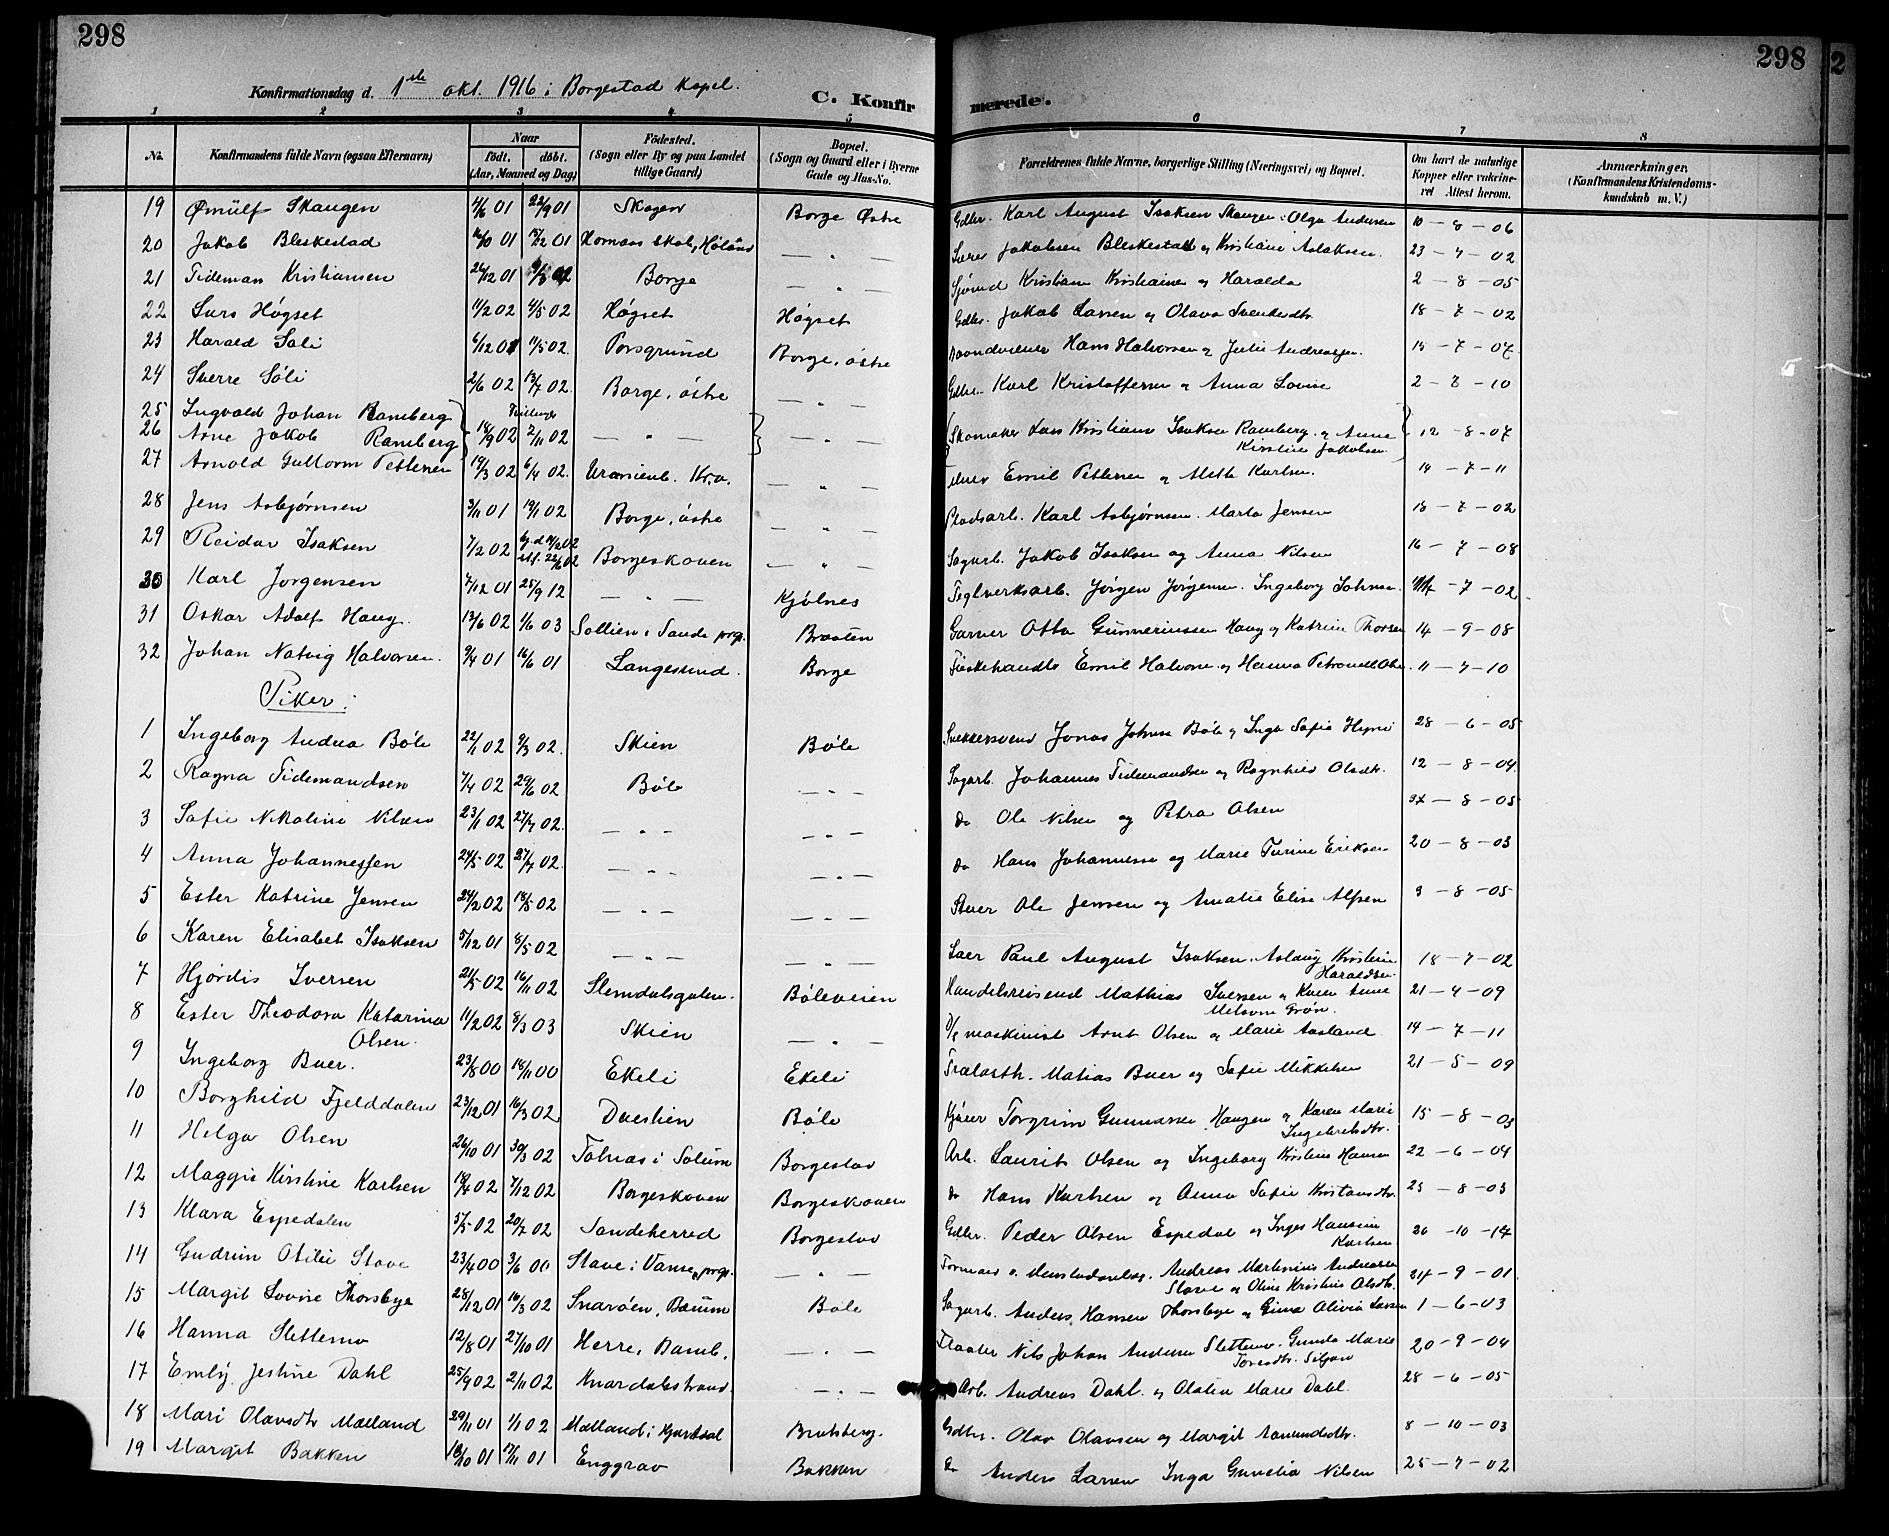 298
298
2
Konfirmationsdag d. 1ste okt. 1916 i Borgestad kapel.
C. Konfirmerede.
1 2 3 4 5 6 7 8
No.
Konfirmandens fulde Navn (ogsaa Efternavn)
Naar
født. døbt.
(Aar, Maaned og Dag)
Fødested.
(Sogn eller By og paa Landet
tillige Gaard)
Bopæl.
(Sogn og Gaard eller i Byerne
Gade og Hus-No.
Forældrenes fulde Navne, borgerlige Stilling (Næringsvei) og Bopæl.
Om havt de naturlige
Kopper eller vakcine-
ret Attest herom.
Anmærkninger.
(Konfirmandens Kristendoms-
kundskab m. V.)
19 Ørnulf Skaugen 4/6 01 22/9 01 Skogen Borge Østre Gdbr. Karl August Isaksen Skaugen Olga Andersen 10 – 8 – 06
20 Jakob Bleskestad 16/10 01 15/12 01 Hornaas skole, Høland — " — Jakobsen Bleskestad og Kristiane Aslaksen 23 – 7 – 02
21 Tideman Kristiansen 26/12 01 Borge — " — Sjømd Kristian Kristiansen og Haralda 2 – 8 – 05
22 Lars Høgset 11/2 02 4/5 02 Høgset Høgset Gdbr. Jakob Larsen og Olava Svendsdtr. 18 – 7 – 02
23 Harald Soli 6/12 01 11/5 02. Porsgrund Borge, østre Hans Halvorsen og Julie Andreassen. 15 – 7 – 07.
24 Sverre Søli 2/6 02 13/7 02. Borge, østre — " — Gdbr. Karl Kristoffersen og Anna Lovise 2 – 8 – 10
Tvillinger
25 Ingvald Johan Ramberg
26 Arne Jakob Ramberg 14/9 02 2/11 02 — " — — " — Skomaker Lars Kristian Isaksen Ramberg og Anna
Kirstine Jakobsen 12 – 8 – 07
27 Arnold Guttorm Pettersen 19/3 02 6/4 02. Uranienb. Kr.a. — " — Emil Pettersen og Mette Karlsen. 14 – 7 – 11
28 Jens Asbjørnsen 3/11 01 19/1 02 Borge, østre — " — Pladsarb. Karl Asbjørnsen. Marta Jensen 15 – 7 – 02
29 Reidar Isaksen 7/2 02 hj.d. 14/2 02
stf. 22/6 02 Borgeskoven — " — Sagarb. Jakob Isaksen og Anna Nilsen 16 – 7 – 08
30 Karl Jørgensen 7/12 01 25/9 12 — " — Kjølnes Teglverksarb. Jørgen Jørgensen. Ingeborg Johnsen – 7 – 02
31 Oskar Adolf Haug. 13/6 02 1/6 03 Sollien i Sande prgj. Braaten Garver Otto Gunneriussen Haug og Katrine Thorsen 14 – 9 – 08
32 Johan Natvig Halvorsen. 9/4 01 16/6 01 Langesund. Borge Fiskehandler Emil Halvorsen og Hanna Petronelle Olsen. 11 – 7 – 10
Piker:
1 Ingeborg Andrea Bøle 22/1 02 9/3 02. Skien Bøle Snekkersvend Jonas Johnsen Bøle og Inga Sofie 28 – 6 – 05
2 Ragna Tidemandsen 7/4 02 29/6 02 Bøle — " — Sagarb. Johannes Tidemandsen og Ragnhild Olsdtr. 12 – 8 – 04.
3 Sofie Nikoline Nilsen 23/1 02 27/7 02. — " — — " — do Ole Nilsen og Petra Olsen – 8 – 05
4 Anna Johannessen 24/5 02 27/7 02. — " — — " — do Hans Johannessen og Marie Turine Eriksen 20 – 8 – 03
5 Ester Katrine Jensen 24/2 02 18/5 02 — " — — " — Ole Jensen og Amalie Elise Alfsen 9 – 8 – 05
6 Karen Elisabet Isaksen 5/12 01 8/5 02 — " — — " — Paul August Isaksen. Aslaug Kristine
Haraldsen. 18 – 7 – 02
7 Hjørdis Iversen 21/5 02 16/11 02 Slemdalsgaten. Bøleveien Handelsreisend Mathias Iversen og Karen Anne
Melsom Grøn. 21 – 4 – 09
8 Ester Theodora Katarina
Olsen. 11/2 02 8/3 03 Skien — " — D/s maskinist Arnt Olsen og Marie Aasland 14 – 7 – 11
9 Ingeborg Buer. 23/8 00 18/11 00 Ekeli Ekeli Trælasth. Matias Buer og Sofie Mikkelsen 21 – 5 – 09
10 Borghild Fjelddalen 23/12 01 16/3 02. Duestien Bøle Kjører Torgrim Gunnarsen Haugen og Karen Marie
Ingebretsdtr. 15 – 8 – 03
11 Helga Olsen 26/10 01 30/3 02 Tofnæs i Solum Borgestad Arb. Laurits Olsen og Ingeborg Kristine Hansen 22 – 6 – 04
12 Maggie Kirstine Karlsen 18/4 02 7/12 02 Borgeskoven Borgeskoven do Hans Karlsen og Anna Sofie Kristensdtr. 23 – 8 – 03
13 Klara Espedalen 5/5 02 20/7 02 Sandeherred Borgestad Gdbr. Peder Olsen Espedal og Inger Hansine
Karlsen 20 – 10 – 14
14 Gudrun Otilie Stave 23/4 00 3/6 00 Stave i Vanse prgj. — " — Formand v. Menstadanlæg. Andreas Martinius Andreassen
Stave og Oline Kristine Olsdtr. 24 – 9 – 01
15 Margit Lovise Thorsbye 28/12 01 16/3 02 Snarøen, Bærum Bøle Sagarb. Anders Hansen Thorsbye og Gina Olivia Larsen 1 – 6 – 03
16 Hanna Slettemo 12/8 01 27/10 01 Herre, Bamb. — " — Fløater Nils Johan Andersen Slettemo. Gunda Marie
Toresdtr. Siljan 20 – 9 – 04
17 Emly Jestine Dahl 25/9 02 2/11 02 Knardalstrand. — " — Arb. Andreas Dahl og Olalia Marie Dahl. 28 – 6 – 05
18 Mari Olavsdtr Mælland 29/11 01 1/1 02 Mælland i Hjartdal Bratsberg. Gdbr. Olav Olavsen og Margit Aamundsdtr. 8 – 10 – 03
19 Margit Bakken 18/10 01 17/11 01 Enggrav Bakken do Anders Larsen Inga Gunelia Nilsen 25 – 7 – 02